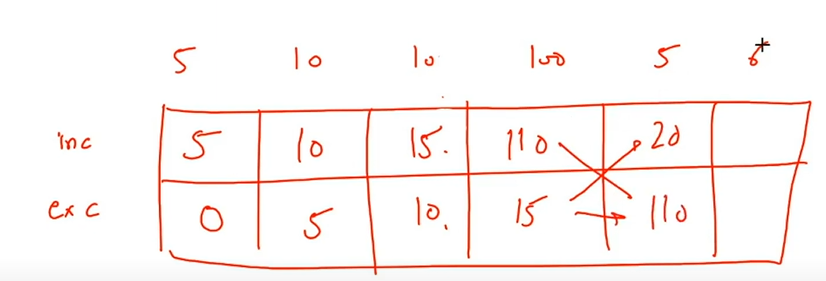 5 10 10 100 5 6
inc 5 10 15. 110 20
exc 0 5 10. 15 110